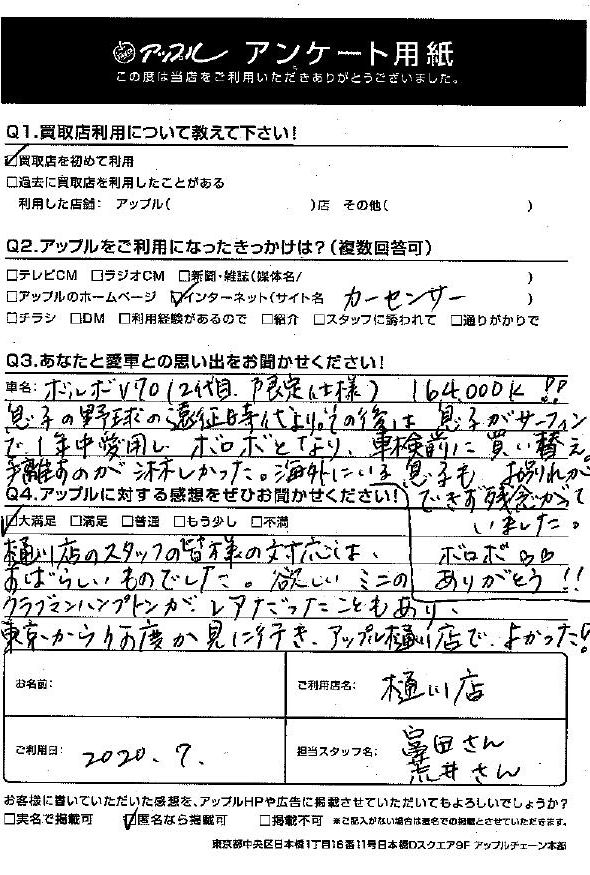 アップル アンケート用紙
この度は当店をご利用いただきありがとうございました。
Q1.買取店利用について教えて下さい!
☑買取店を初めて利用
□過去に買取店を利用したことがある
利用した店舗: アップル( )店 その他( )
Q2.アップルをご利用になったきっかけは?(複数回答可)
□テレビCM □ラジオCM □新聞・雑誌(媒体名/ )
□アップルのホームページ ☑インターネット(サイト名 カーセンサー )
□チラシ □DM □利用経験があるので □紹介 □スタッフに誘われて □通りがかりで
Q3.あなたと愛車との思い出をお聞かせください!
車名: ボルボV70(2代目、限定仕様) 164,000K!!
息子の野球の遠征時代より。その後は、息子がサーフィン
で1年中愛用し、ボロボとなり、車検前に買い替え。
手離すのが淋しかった。海外にいる息子も お別れが
できず残念がって
いました。
ボロボ
ありがとう!!
Q4.アップルに対する感想をぜひお聞かせください!
☑大満足 □満足 □普通 □もう少し □不満
樋川店のスタッフの皆様の対応は、
すばらしいものでした。欲しいミニの
クラブマンハンプトンがレアだったこともあり、
東京から何度か見に行き、アップル樋川店で、よかった!
お名前:
ご利用店名: 樋川店
ご利用日: 2020.7.
担当スタッフ名: 冨田さん
荒井さん
お客様に書いていただいた感想を、アップルHPや広告に掲載させていただいてもよろしいでしょうか?
□実名で掲載可 ☑匿名なら掲載可 □掲載不可 ※ご記入がない場合は匿名での掲載とさせていただきます。
東京都中央区日本橋1丁目16番11号日本橋Dスクエア9F アップルチェーン本部